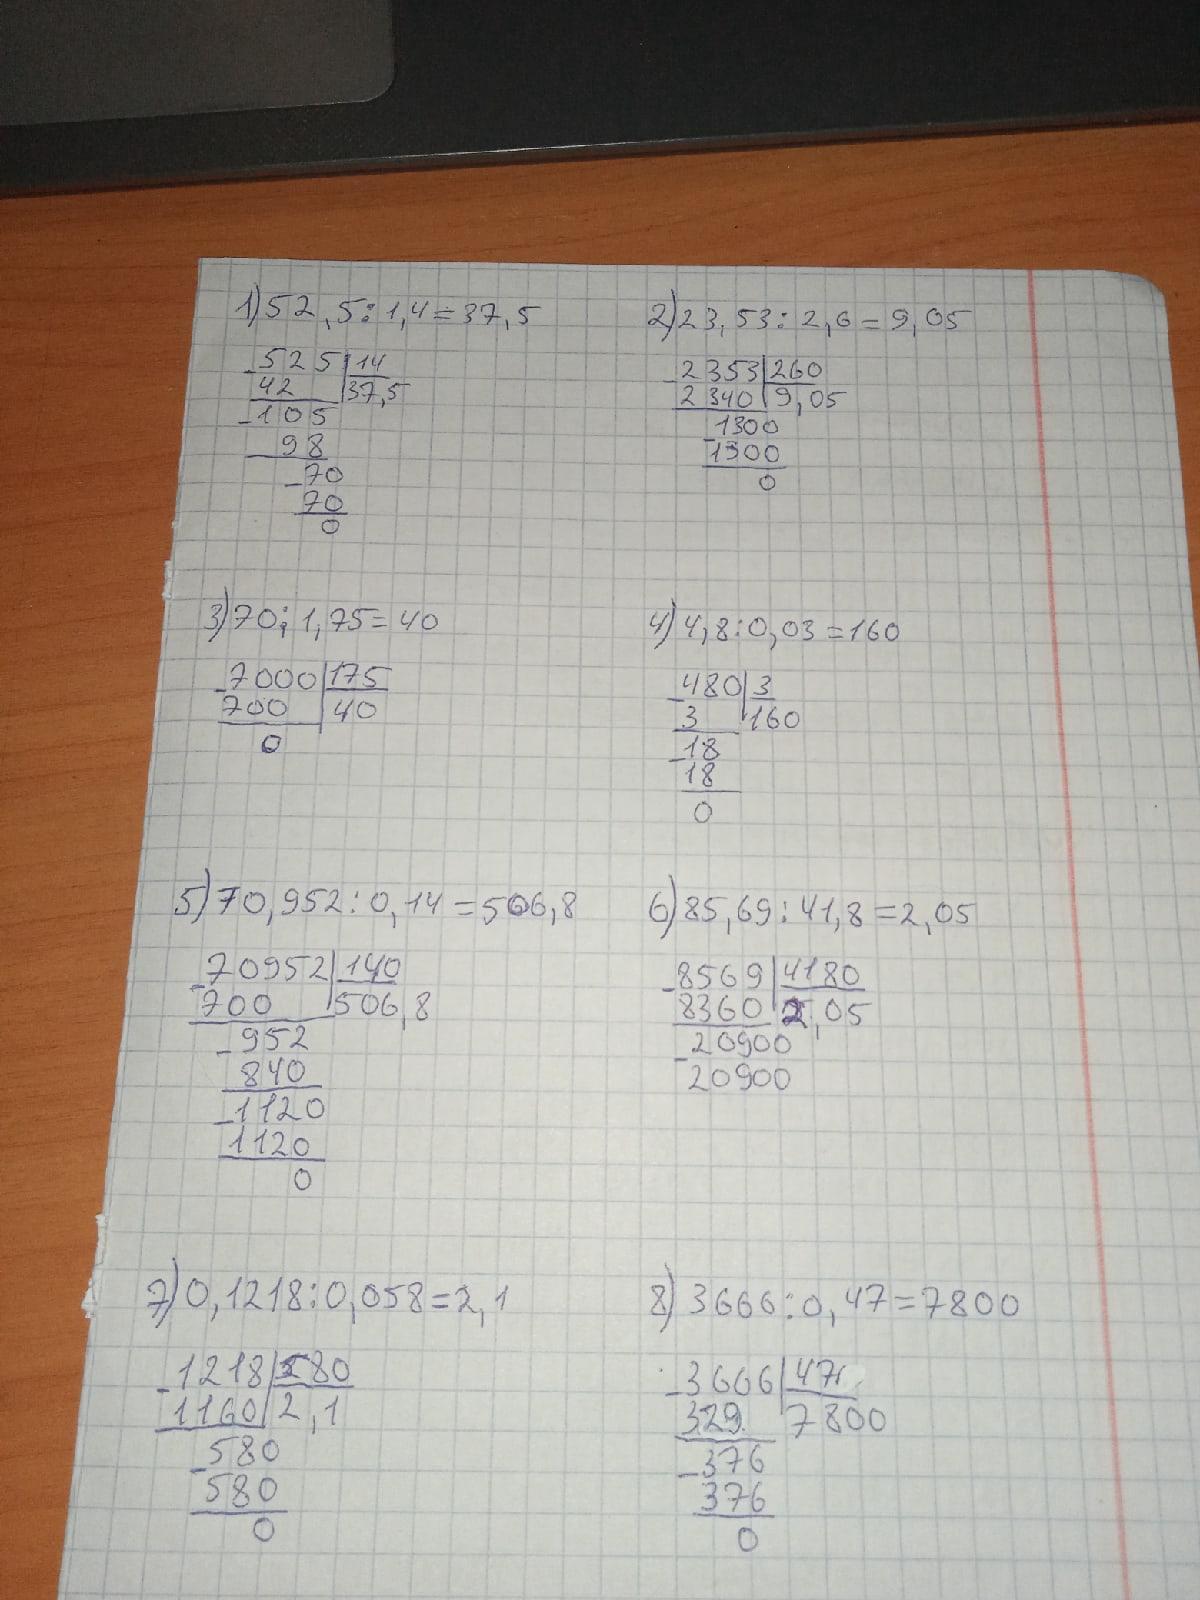 1) 52,5 : 1,4 = 37,5
525 | 14
42 | 37,5
105
98
70
70
0
2) 23,53 : 2,6 = 9,05
2353 | 260
2340 | 9,05
1300
1300
0
3) 70 : 1,75 = 40
7000 | 175
700 | 40
0
4) 4,8 : 0,03 = 160
480 | 3
3 | 160
18
18
0
5) 70,952 : 0,14 = 506,8
70952 | 140
700 | 506,8
952
840
1120
1120
0
6) 85,69 : 41,8 = 2,05
8569 | 4180
8360 | 2,05
20900
20900
7) 0,1218 : 0,058 = 2,1
1218 | 580
1160 | 2,1
580
580
0
8) 3666 : 0,47 = 7800
3666 | 47
329 | 7800
376
376
0